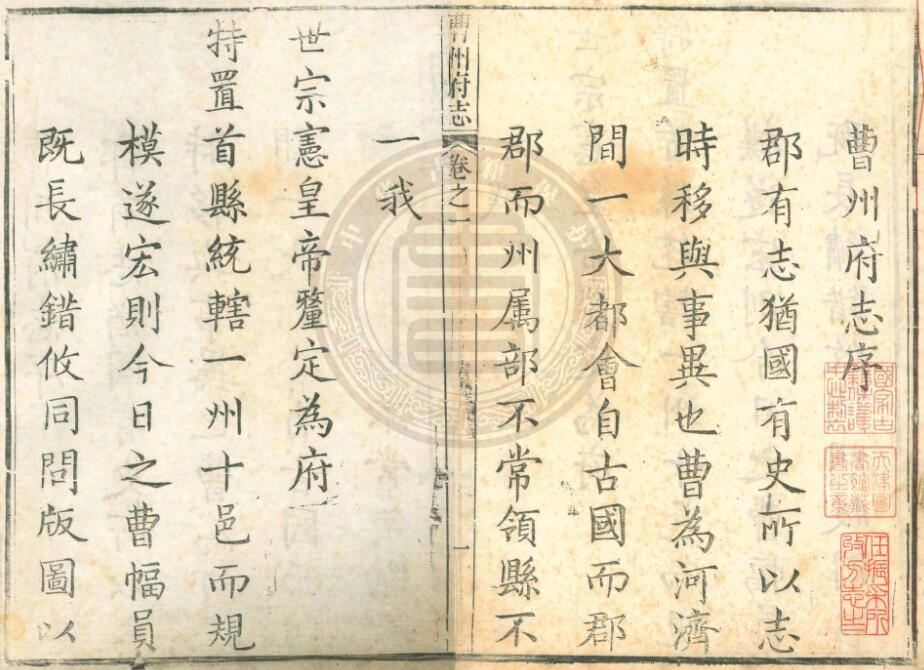 曹州府志序
郡有志猶國有史所以志
時移與事異也曹為河濟
間一大都會自古國而郡
郡而州属部不常領縣不
曹州府志
卷之一
一
一我
世宗憲皇帝釐定為府
特置首縣統轄一州十邑而規
模遂宏則今日之曹幅員
既長繡錯攸同問版圖以
任振采所
收方志之一